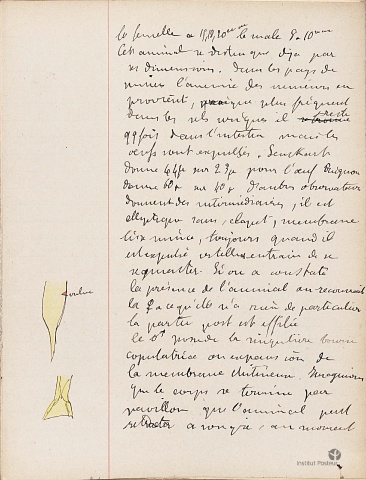 la femelle a 18, 19, 20 mm le male 8 à 10 mm
Cet animal se distingue déja par
ses dimensions. Dans les pays de
mines l'anemie des mineurs en
provient, plus fréquent
dans les il reste
qq fois dans l'intestin mais les
oeufs sont expulsés. Leuckart
donne 44µ sur 23µ pour l'oeuf
donne 60µ sur 40µ D'autres observateurs
donnent des intermédiaires, il est
elliptique sans clapet, membrane
lisse mince, toujours quand il
est expulsé est-il en train de se
segmenter. Si on a constaté
la présence de l'animal on reconnait
la ♀ à ce qu'elle n'a rien de particulier
la partie post est effilée
le ♂ possède la singulière bourse
copulatrice ou expansion de
la membrane
que le corps se termine par
pavillon que l'animal peut
retracter au moment
vulve
Institut Pasteur